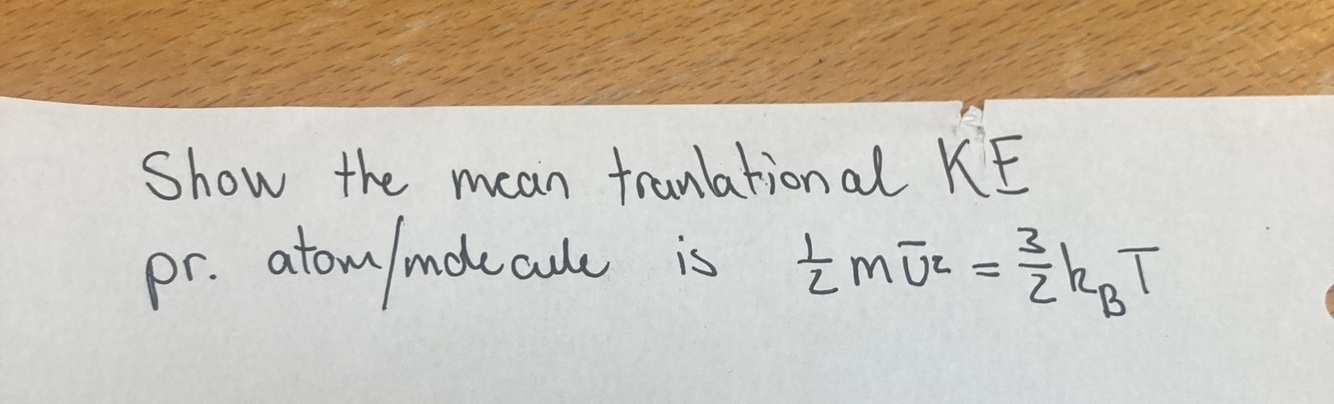 Show the mean tranlational KE
pr. atom/molecule is ½ m v̄² = 3/2 k_B T